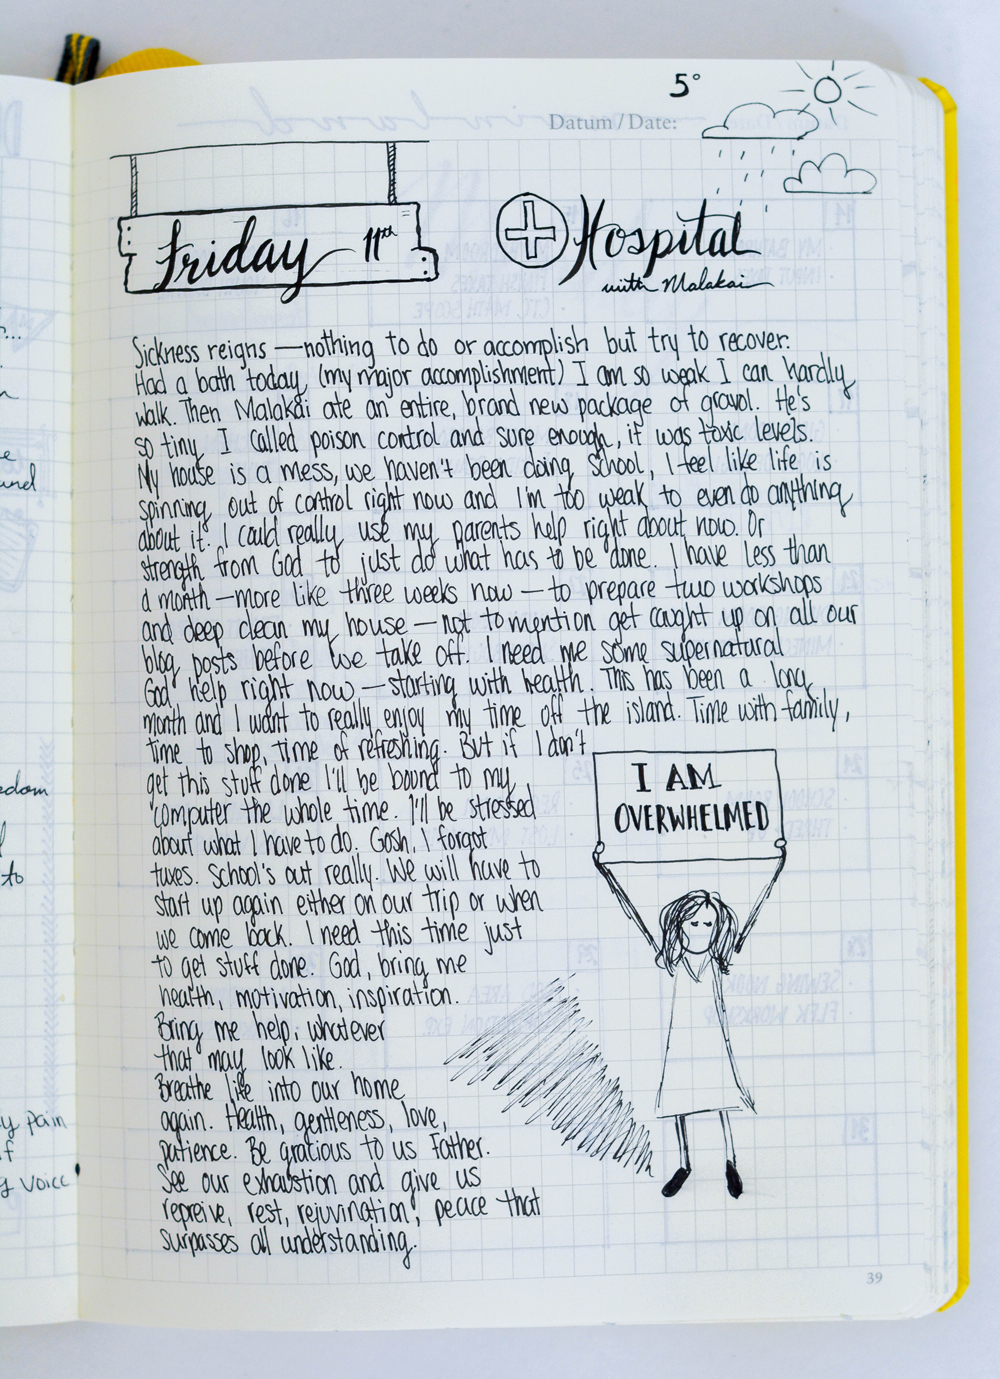 5°
Datum/Date:
Friday 11th
Hospital
with Malakai
Sickness reigns — nothing to do or accomplish but try to recover.
Had a bath today (my major accomplishment) I am so weak I can hardly
walk. Then Malakai ate an entire, brand new package of gravol. He's
so tiny I called poison control and sure enough, it was toxic levels.
My house is a mess, we haven't been doing school, I feel like life is
spinning out of control right now and I'm too weak to even do anything
about it. I could really use my parents help right about now. Or
strength from God to just do what has to be done. I have less than
a month — more like three weeks now — to prepare two workshops
and deep clean my house — not to mention get caught up on all our
blog posts before we take off. I need me some supernatural
God help right now — starting with health. This has been a long
month and I want to really enjoy my time off the island. Time with family,
time to shop, time of refreshing. But if I don't
get this stuff done I'll be bound to my
computer the whole time. I'll be stressed
about what I have to do. Gosh, I forgot
taxes. School's out really. We will have to
start up again either on our trip or when
we come back. I need this time just
to get stuff done. God, bring me
health, motivation, inspiration.
Bring me help, whatever
that may look like.
Breathe life into our home
again. Health, gentleness, love,
patience. Be gracious to us Father.
See our exhaustion and give us
repreive, rest, rejuvination, peace that
surpasses all understanding.
I AM
OVERWHELMED
39
und
edom
to
y pain
f
g voice